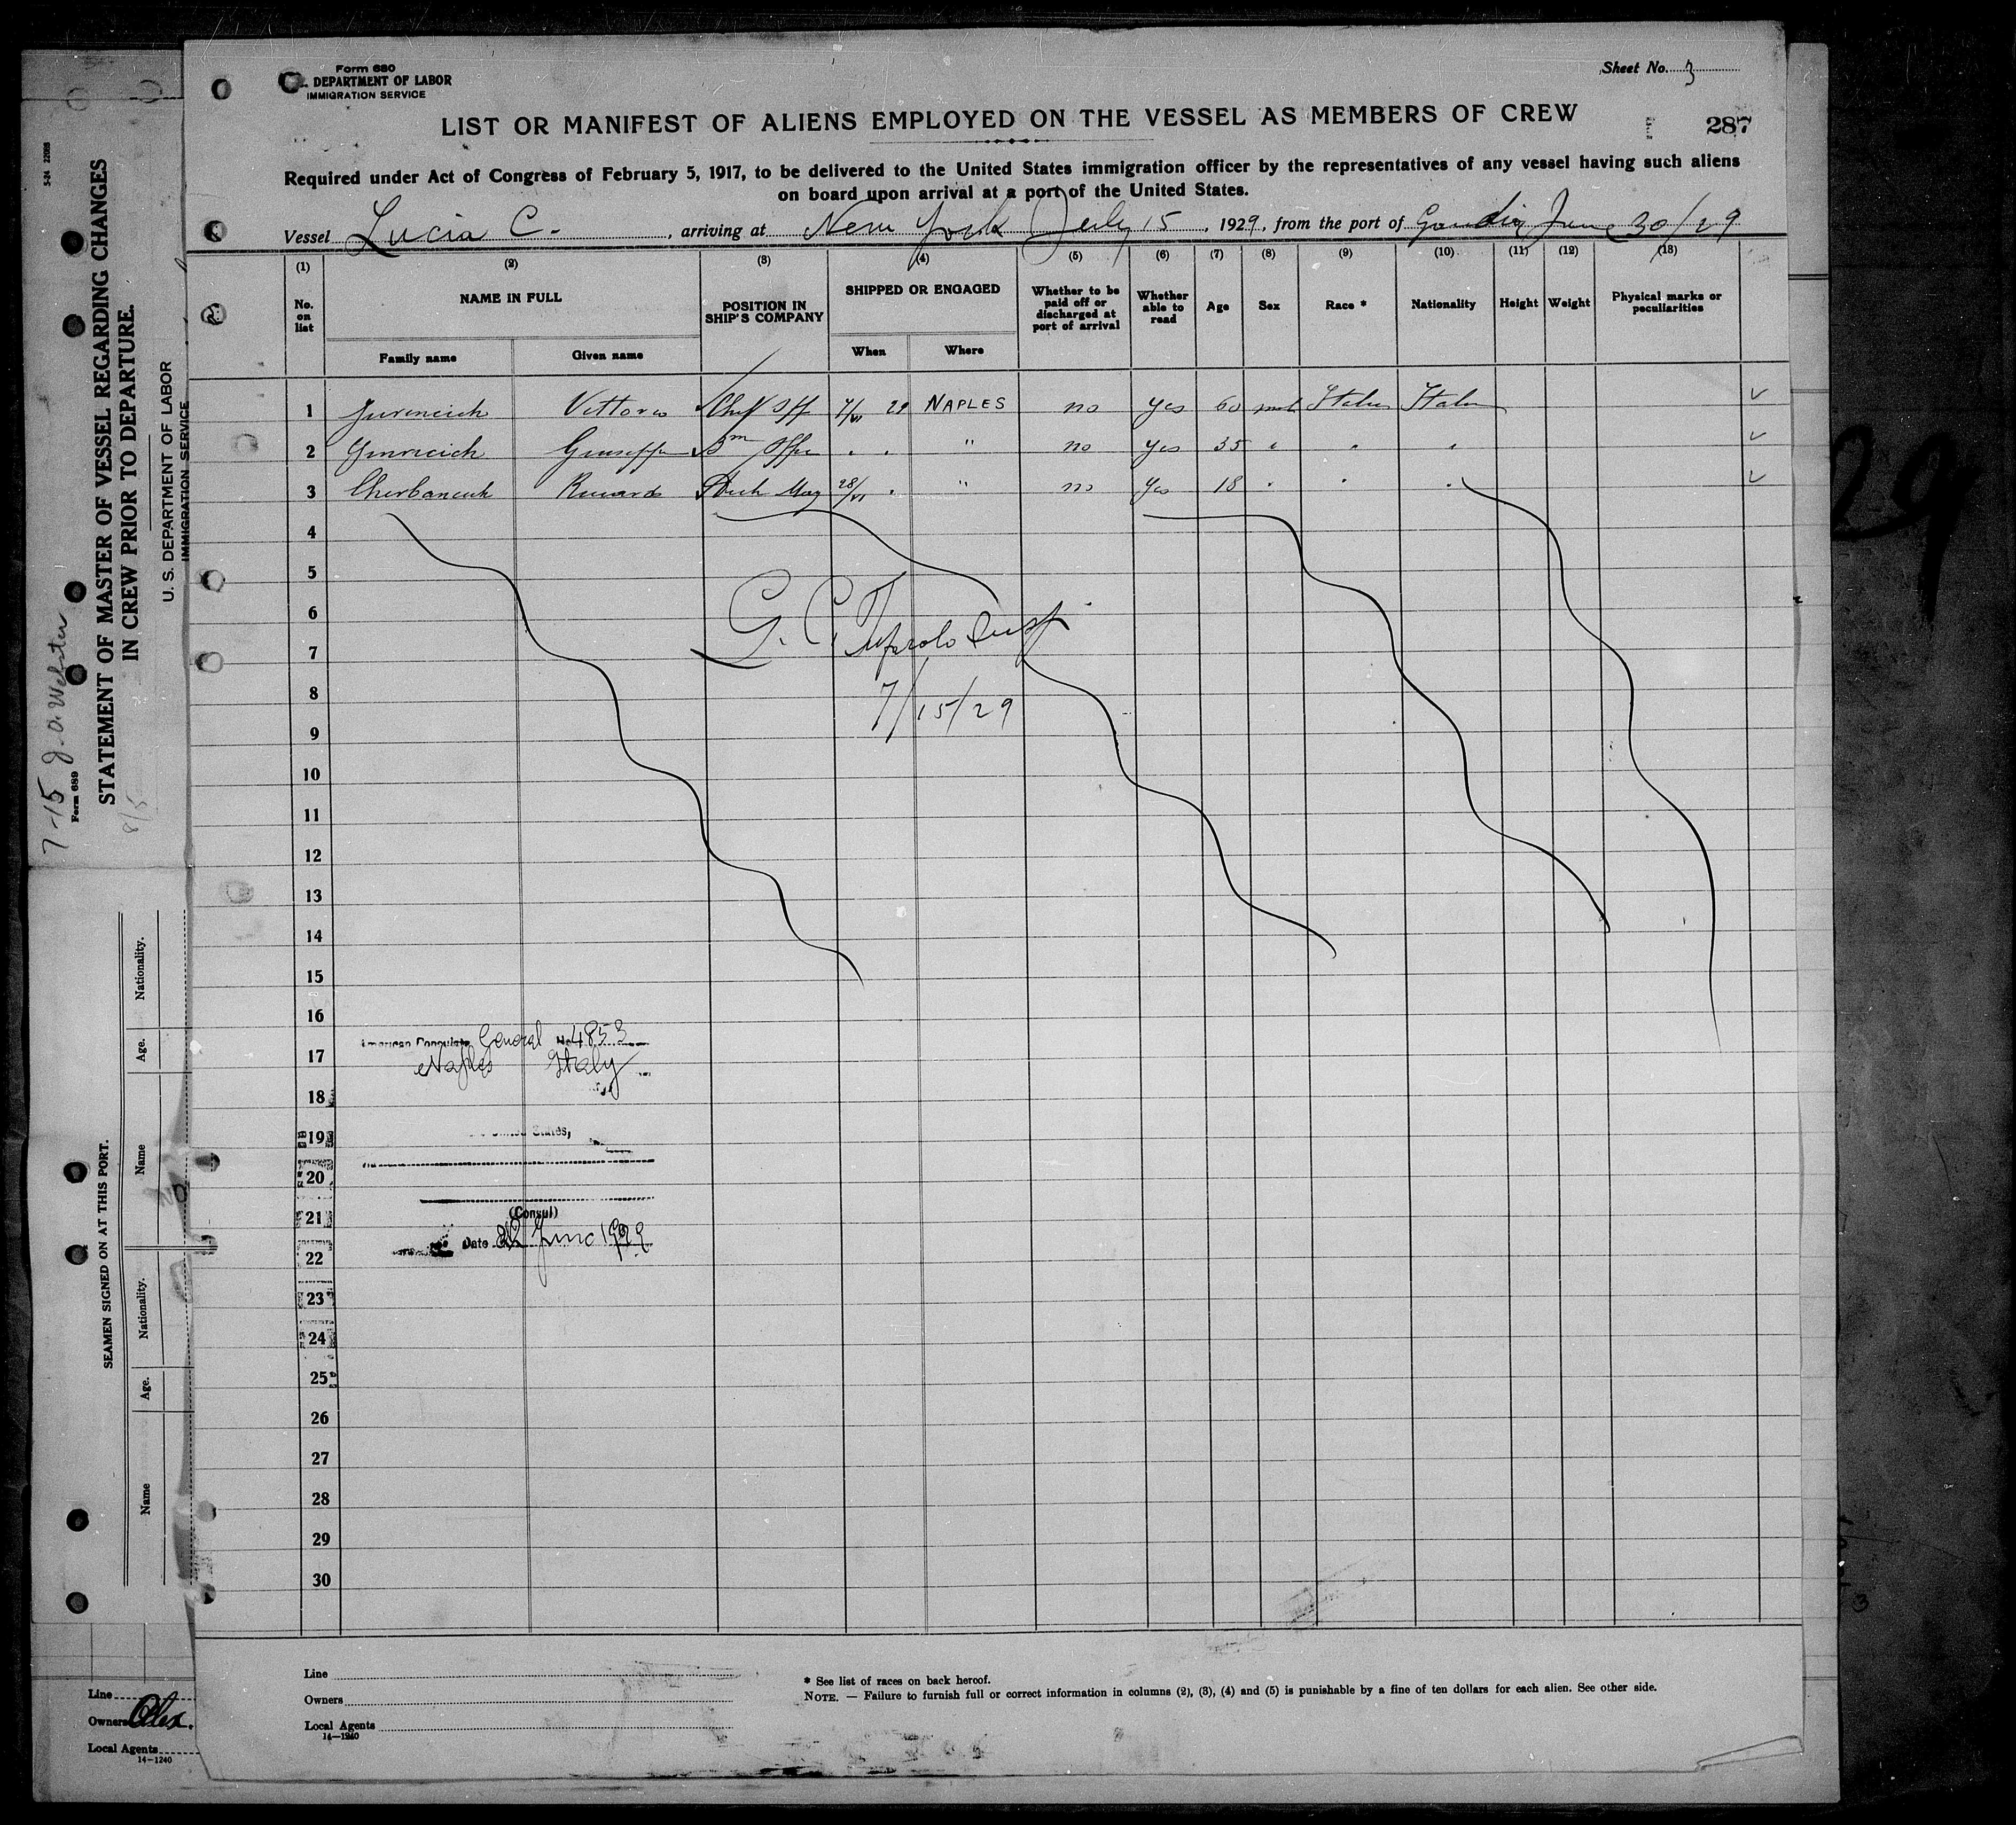 Form 680
DEPARTMENT OF LABOR
IMMIGRATION SERVICE
Sheet No. 3
LIST OR MANIFEST OF ALIENS EMPLOYED ON THE VESSEL AS MEMBERS OF CREW
287
Required under Act of Congress of February 5, 1917, to be delivered to the United States immigration officer by the representatives of any vessel having such aliens
on board upon arrival at a port of the United States.
Vessel Lucia C. , arriving at New York July 15 , 1929, from the port of Gandia June 30/29
(1) (2) (3) (4) (5) (6) (7) (8) (9) (10) (11) (12) (13)
No. on list
NAME IN FULL
Family name
Given name
POSITION IN SHIP'S COMPANY
SHIPPED OR ENGAGED
When
Where
Whether to be paid off or discharged at port of arrival
Whether able to read
Age
Sex
Race *
Nationality
Height
Weight
Physical marks or peculiarities
1 Vittorio Off 29 NAPLES no yes 60 Italian Italian
2 Giuseppe " no yes 35 " " "
3 28/VI " " no yes 18 " " "
4
5
6
7
8
7/15/29
9
10
11
12
13
14
15
16
American Consulate General No. 4853
17
Naples Italy
18
19
United States,
20
21
(Consul)
Date June 1929
22
23
24
25
26
27
28
29
30
Line
Owners
Local Agents
14—1240
* See list of races on back hereof.
NOTE. — Failure to furnish full or correct information in columns (2), (3), (4) and (5) is punishable by a fine of ten dollars for each alien. See other side.
5-24 22088
STATEMENT OF MASTER OF VESSEL REGARDING CHANGES
IN CREW PRIOR TO DEPARTURE.
U. S. DEPARTMENT OF LABOR
IMMIGRATION SERVICE
Form 689
7-15 J. A. Webster
8/5
SEAMEN SIGNED ON AT THIS PORT.
Nationality.
Age.
Name
Nationality.
Age.
Name
Line
Owners
Local Agents
14—1240
29